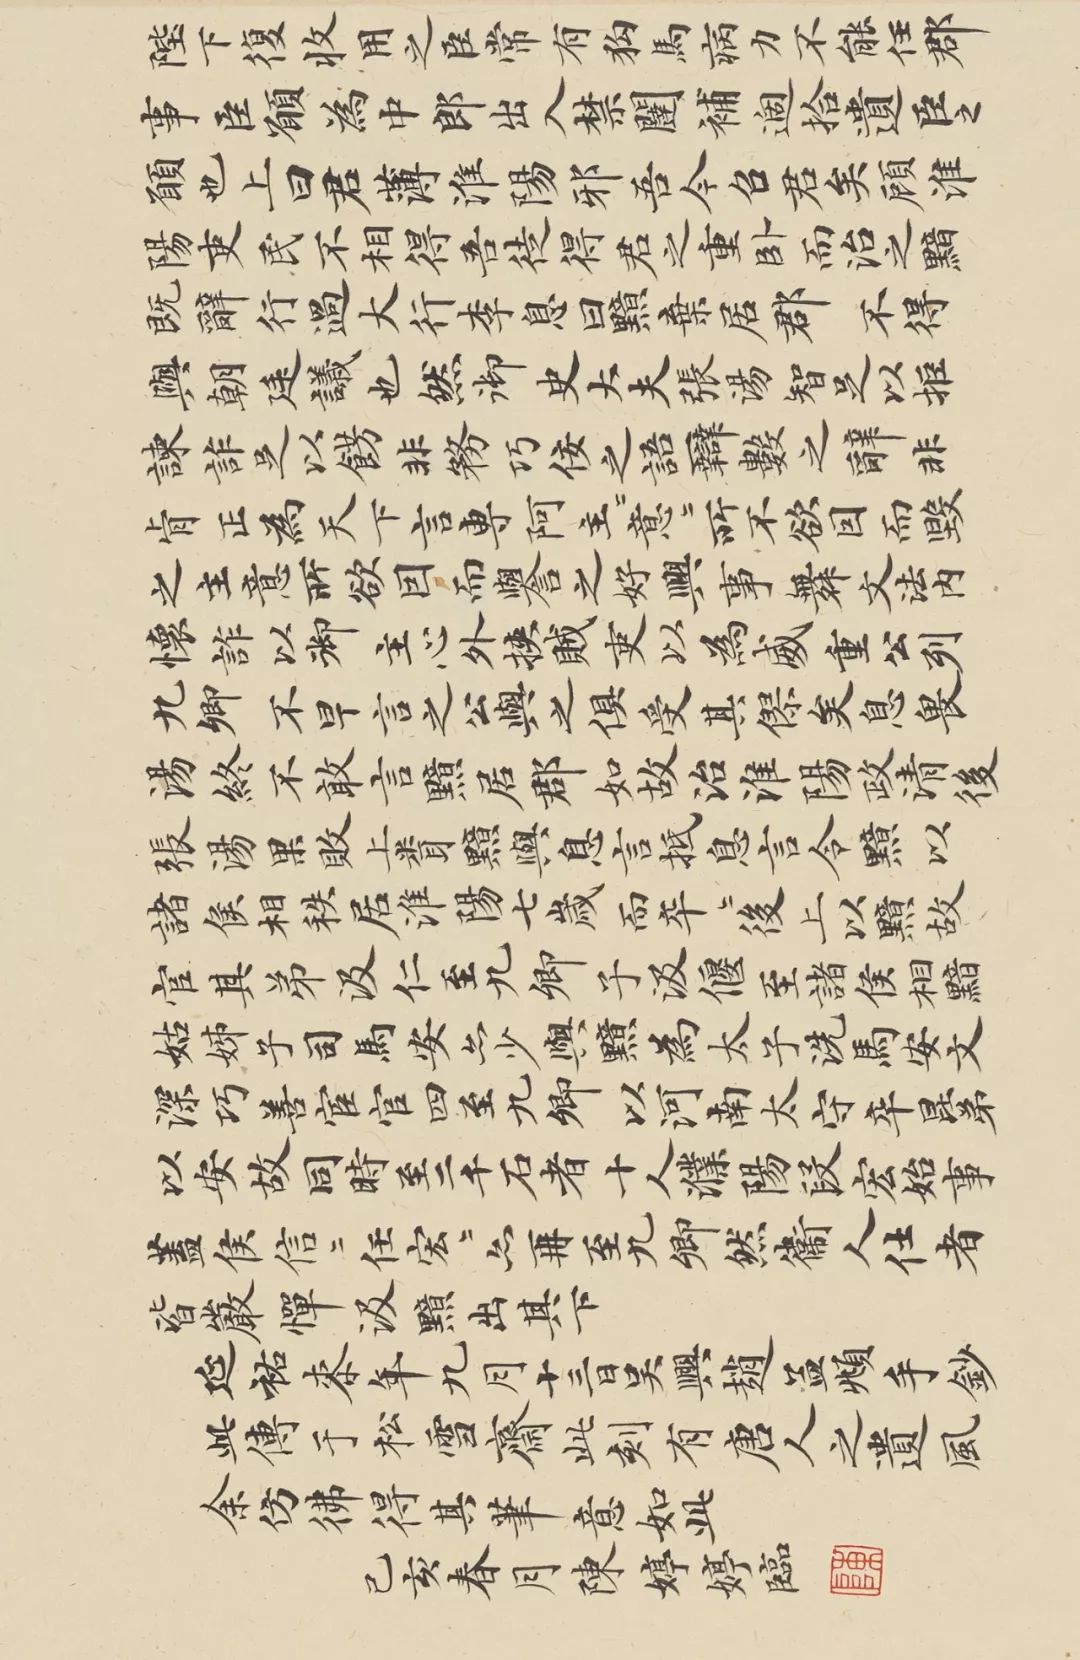 陛下復收用之臣常有狗馬病力不能任郡
事臣願為中郎出入禁闥補過拾遺臣之
願也上曰君薄淮陽邪吾今召君矣顧淮
陽吏民不相得吾徒得君之重臥而治之黯
既辭行過大行李息曰黯棄居郡不得
與朝廷議也然御史大夫張湯智足以拒
諫詐足以飾非務巧佞之語辯數之辭非
肯正為天下言專阿主〻意〻所不欲因而毀
之主意所欲因而譽之好興事舞文法內
懷詐以御主心外挾賊吏以為威重公列
九卿不早言之公與之俱受其僇矣息畏
湯終不敢言黯居郡如故治淮陽政清後
張湯果敗上黯與息言抵息言令黯以
諸侯相秩居淮陽七歲而卒〻後上以黯故
官其弟汲仁至九卿子汲偃至諸侯相黯
姑姊子司馬安亦少與黯為太子洗馬安文
深巧善宦官四至九卿以河南太守卒昆弟
以安故同時至二千石者十人濮陽段宏始事
蓋侯信〻任宏〻亦再至九卿然衛人仕者
皆嚴憚汲黯出其下
延祐柒年九月十三日吳興趙孟頫手鈔
此傳于松雪齋此刻有唐人之遺風
余仿彿得其筆意如此
己亥春月陳婷婷臨